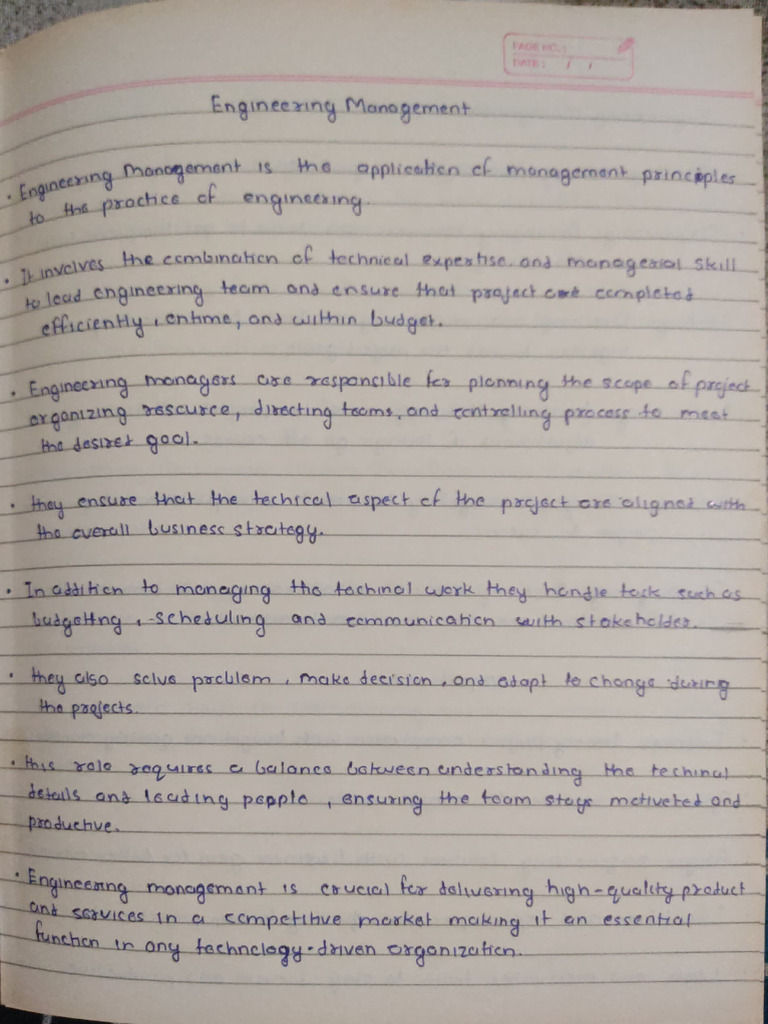 PAGE NO.:
DATE: / /
Engineering Management
• Engineering Management is the application of management principles
to the practice of engineering.
• It involves the combination of technical expertise and managerial skill
to lead engineering team and ensure that project are completed
efficiently, ontime, and within budget.
• Engineering managers are responsible for planning the scope of project
organizing resource, directing teams, and controlling process to meet
the desired goal.
• they ensure that the techical aspect of the project are aligned with
the overall business strategy.
• In addition to managing the techinal work they handle task such as
budgeting, scheduling and communication with stakeholder.
• they also solve problem, make decision, and adapt to change during
the projects.
• this role requires a balance between understanding the techinal
details and leading people, ensuring the team stays motiveted and
productive.
• Engineering management is crucial for delivering high-quality product
and services in a competitive market making it an essential
function in any technology-driven organization.